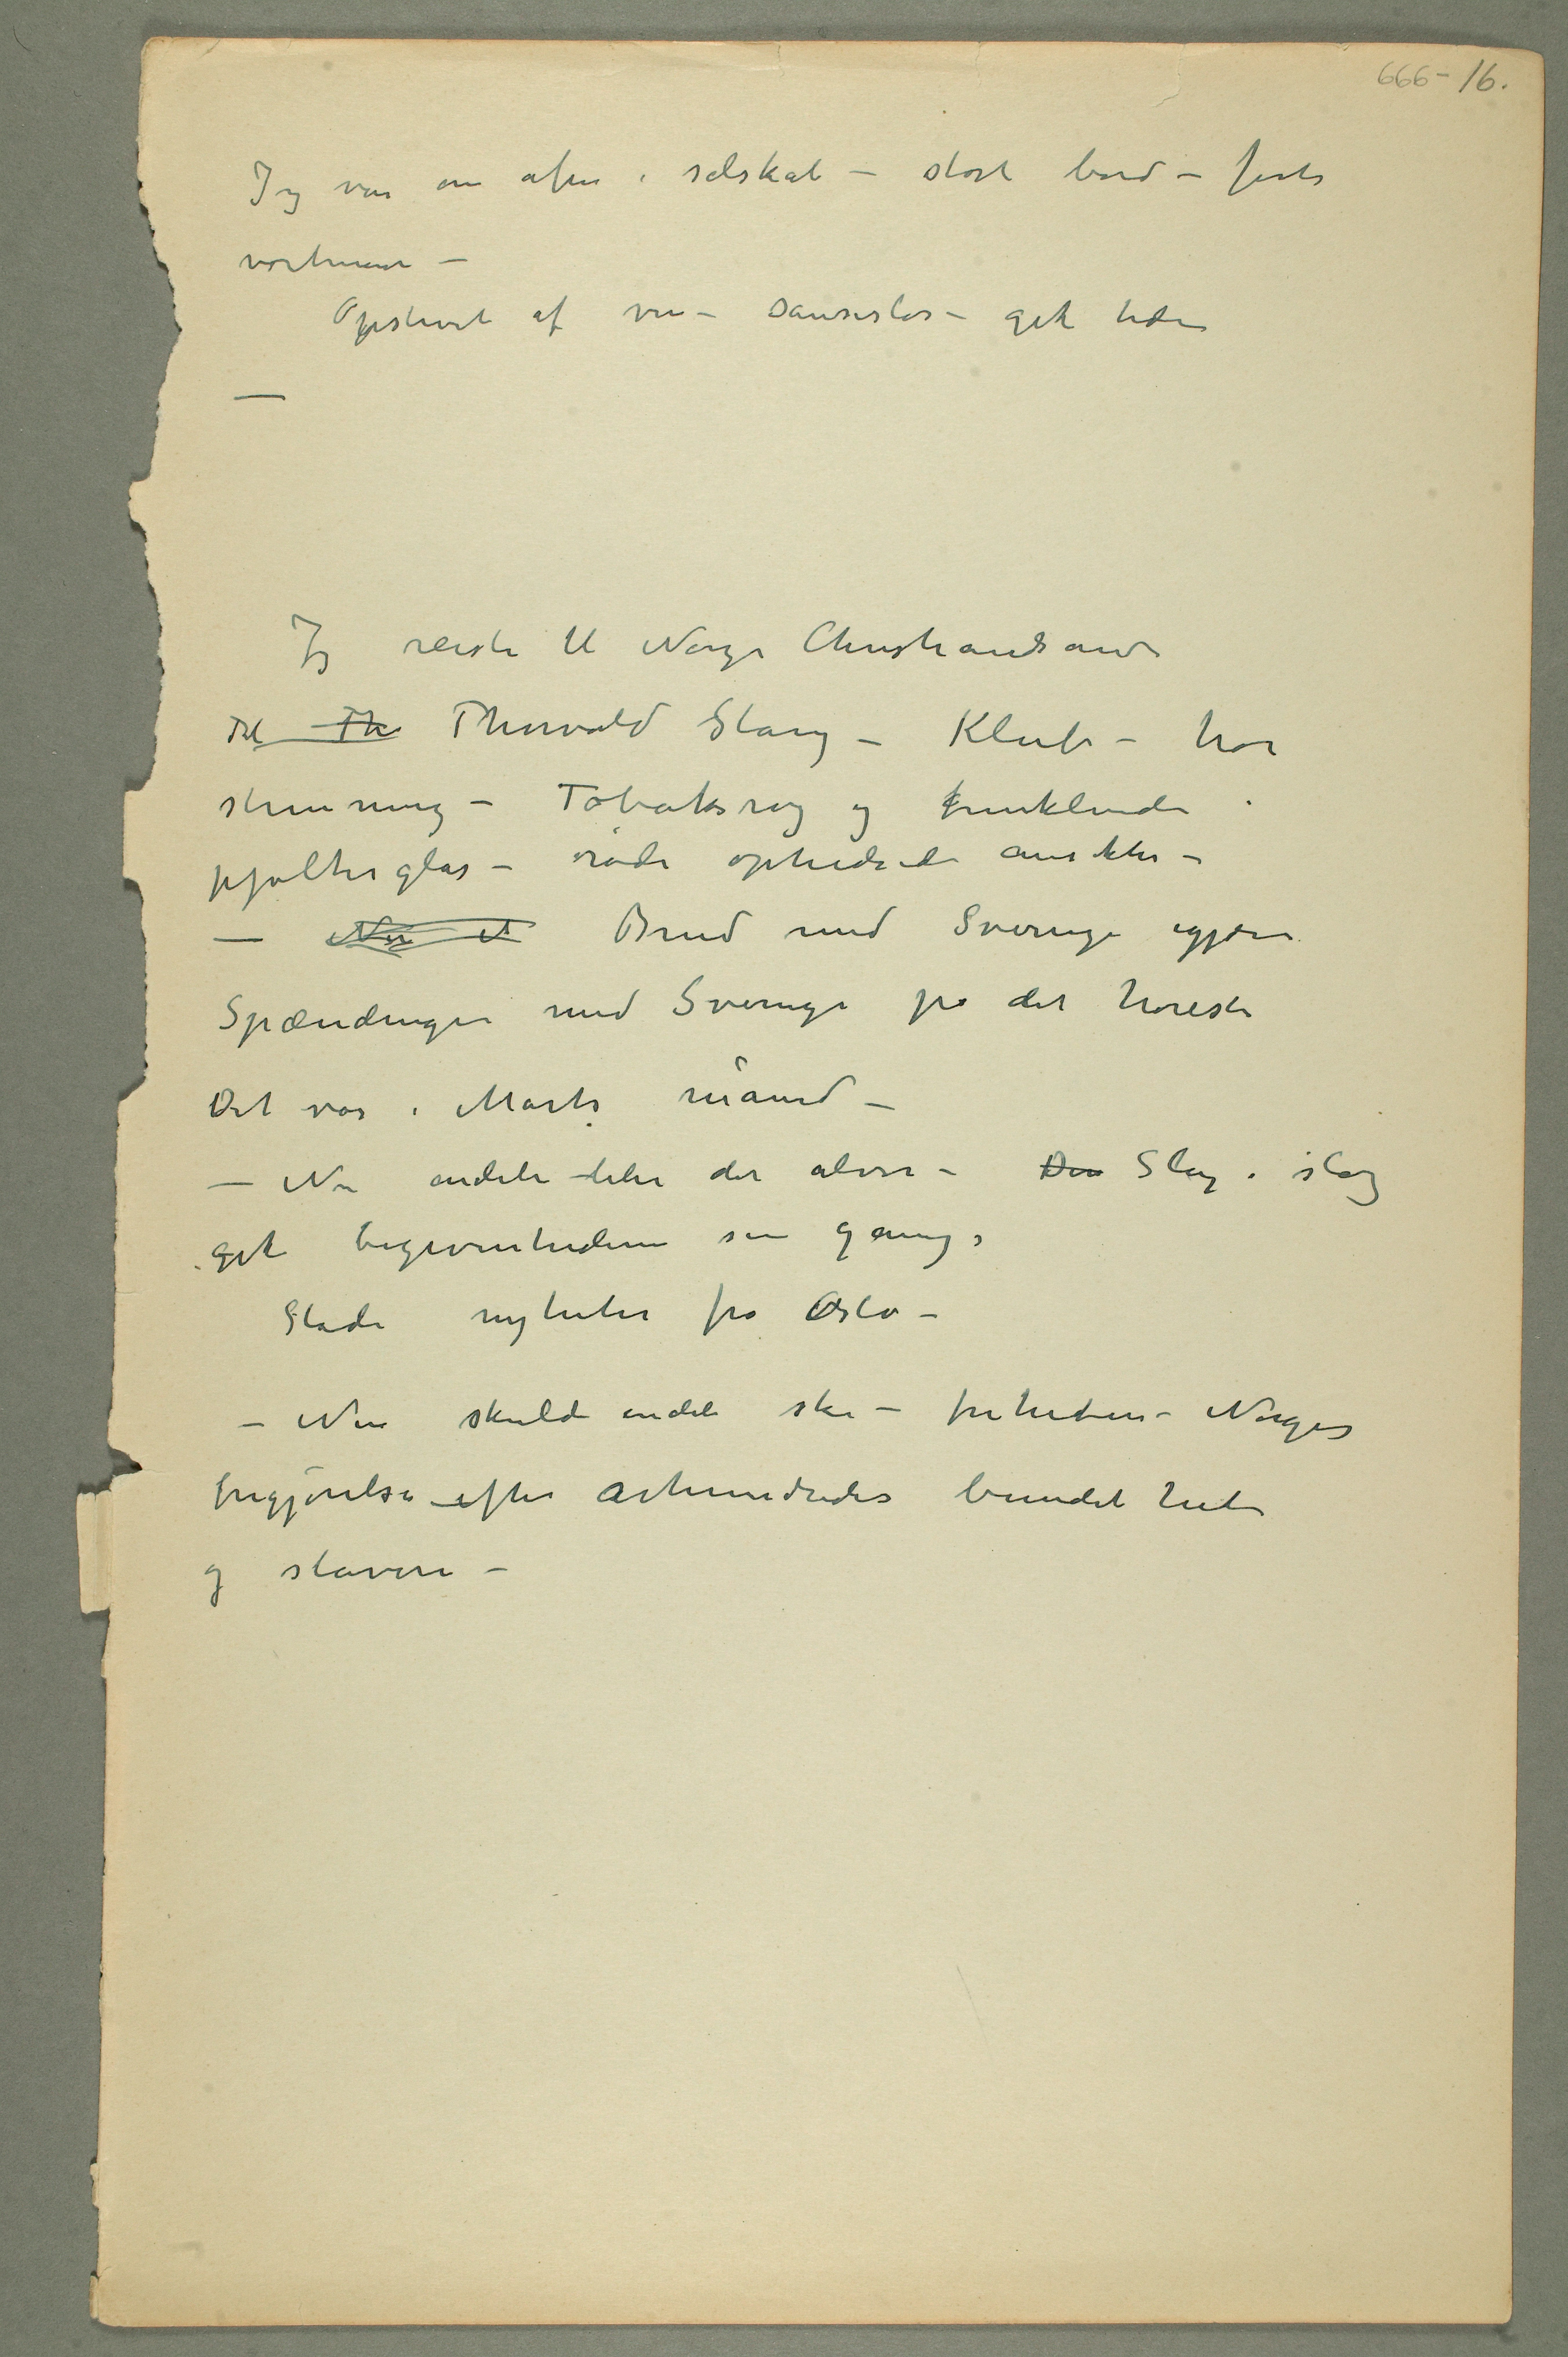 666-16.
Jeg var en aften i selskab – stort bord – fest
Opstivet af vin – sanseslös – gik tiden
—
Jeg reiste til Norge Christiansand
Til Th Thorvald Stang – Klub – høi
stemning – Tobaksrøg og funklende
pjolterglas – røde ophedede ansikter –
— Nu et Brud med Sverige igjen
Spændingen med Sverige på det høieste
Det var i Marts måned –
— Nu endeli blev det alvor – Den Slag i slag
gik begivenhederne sin gang.
Stadi nyheter fra Oslo –
– Nu skulde endeli ske – friheden – Norges
frigjörelse efter århundredes bundethet
og slaveri –